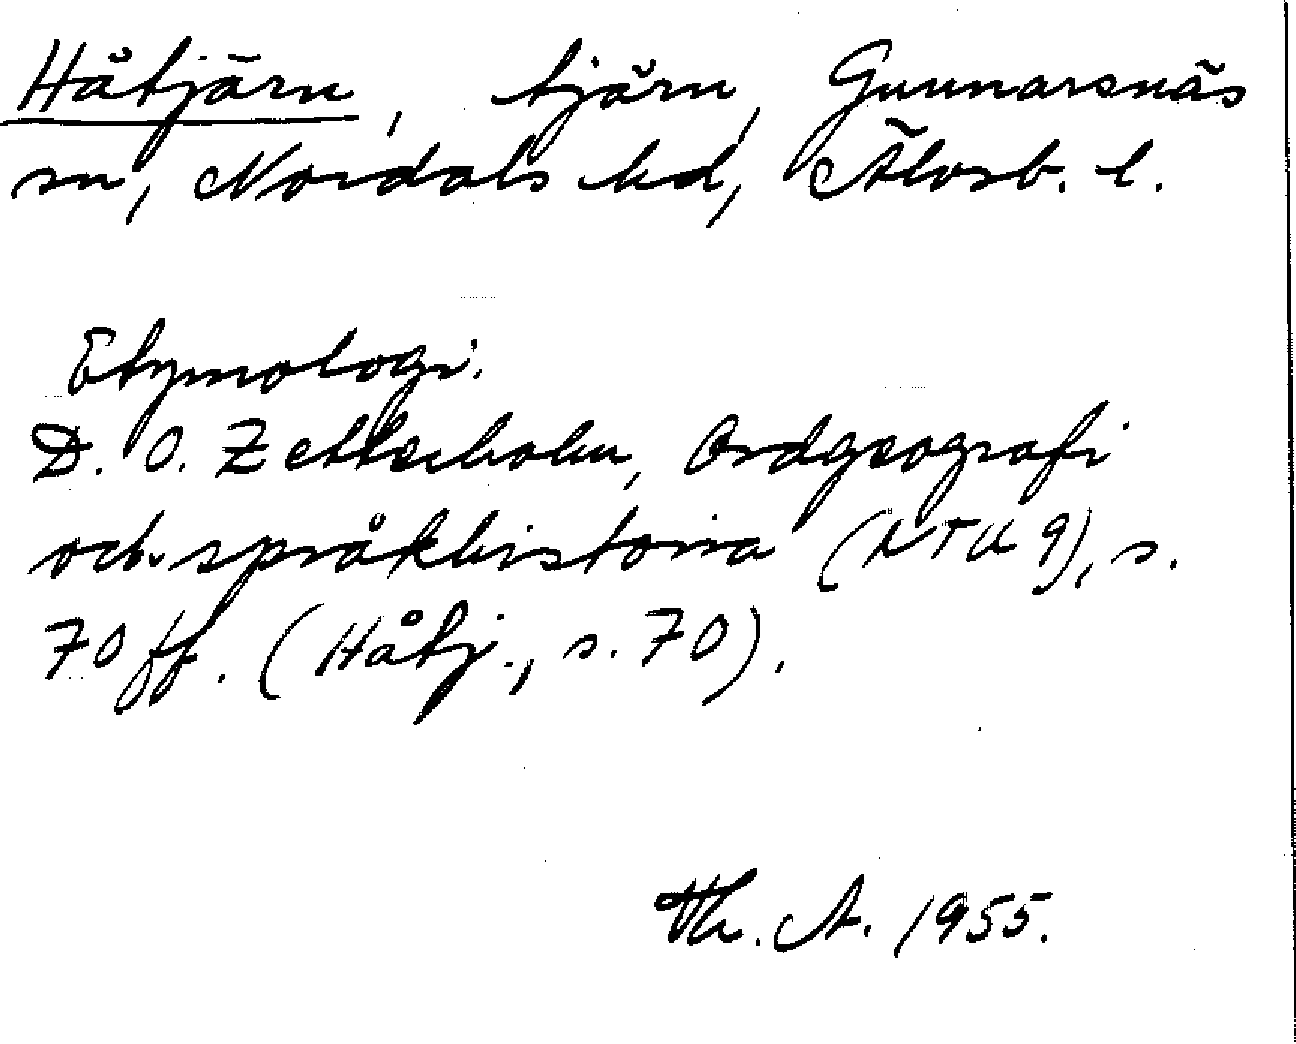 Håtjärn, tjärn, Gunnarsnäs
sn, Nordals hd, Älvsb. l.
Etymologi.
D. O. Zetterholm, Ordgeografi
och språkhistoria (NTU 9), s.
70 ff. (Håtj., s. 70).
Th. A. 1955.